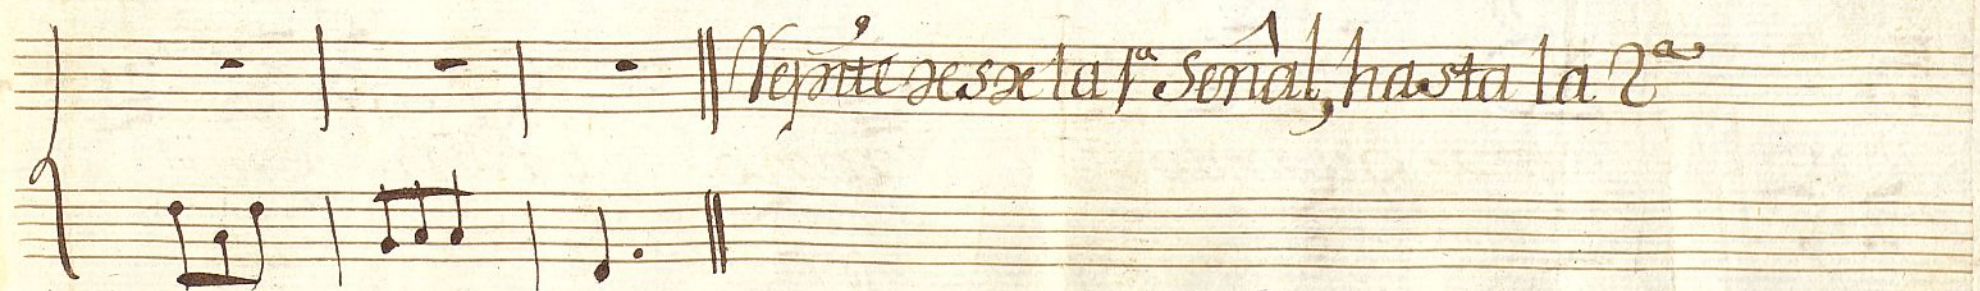 Repite desde la 1ª Señal, hasta la 2ª